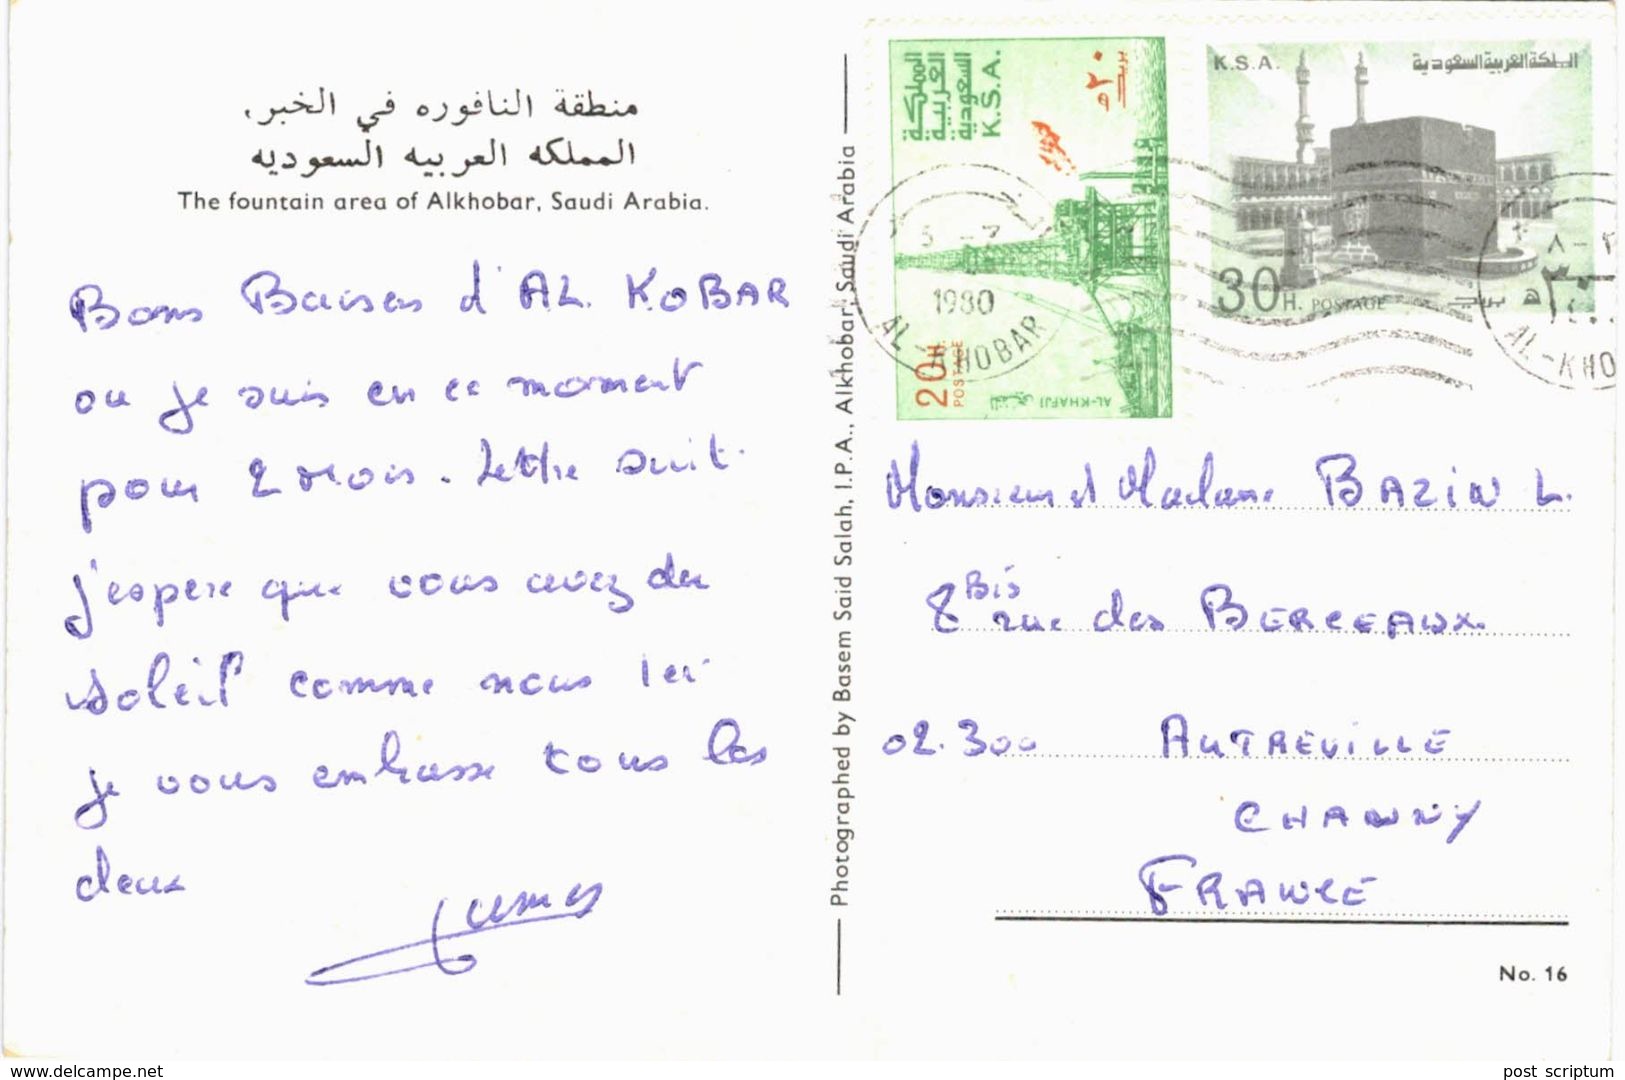 منطقة النافوره في الخبر،
المملكه العربيه السعوديه
The fountain area of Alkhobar, Saudi Arabia.
Bons Baises d'AL KOBAR
ou je suis en ce moment
pour 2 mois. Lettre suit.
j'espere que vous avez du
soleil comme nous ici
je vous embrasse tous les
deux
James
Photographed by Basem Said Salah, I.P.A., Alkhobar, Saudi Arabia
المملكة
العربية
السعودية
K.S.A.
٢٠هـ
بريد
20H.
POSTAGE
AL-KHAFJI الخفجي
5 - 7
1980
AL-KHOBAR
K.S.A.
المملكة العربية السعودية
30H. POSTAGE بريد ٣٠هـ
AL-KHO
Monsieur et Madame BAZIN L.
8 Bis rue des BERCEAUX
02.300 AUTREVILLE
CHAUNY
FRANCE
No. 16
www.delcampe.net
post scriptum